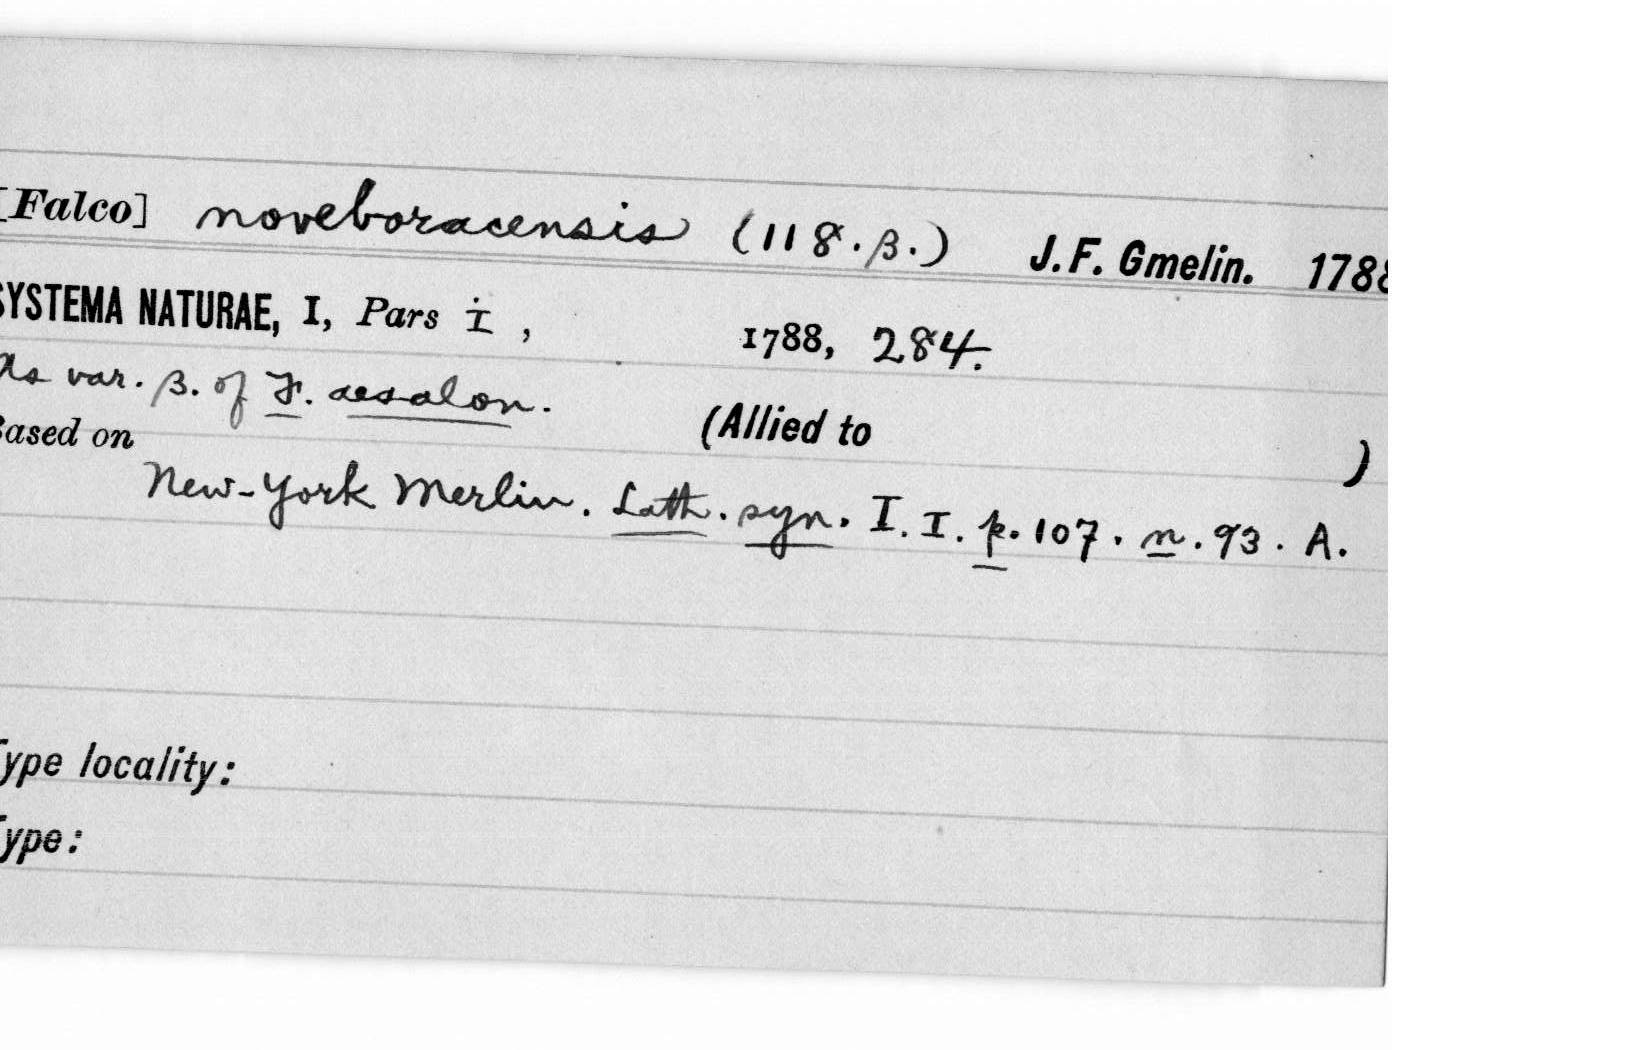 [Falco] noveboracensis (118.β.) J.F. Gmelin. 1788
SYSTEMA NATURAE, I, Pars I, 1788, 284.
As var. β. of F. aesalon.
(Allied to )
Based on
New-York Merlin. Lath. syn. I. I. p. 107. n. 93. A.
Type locality:
Type: